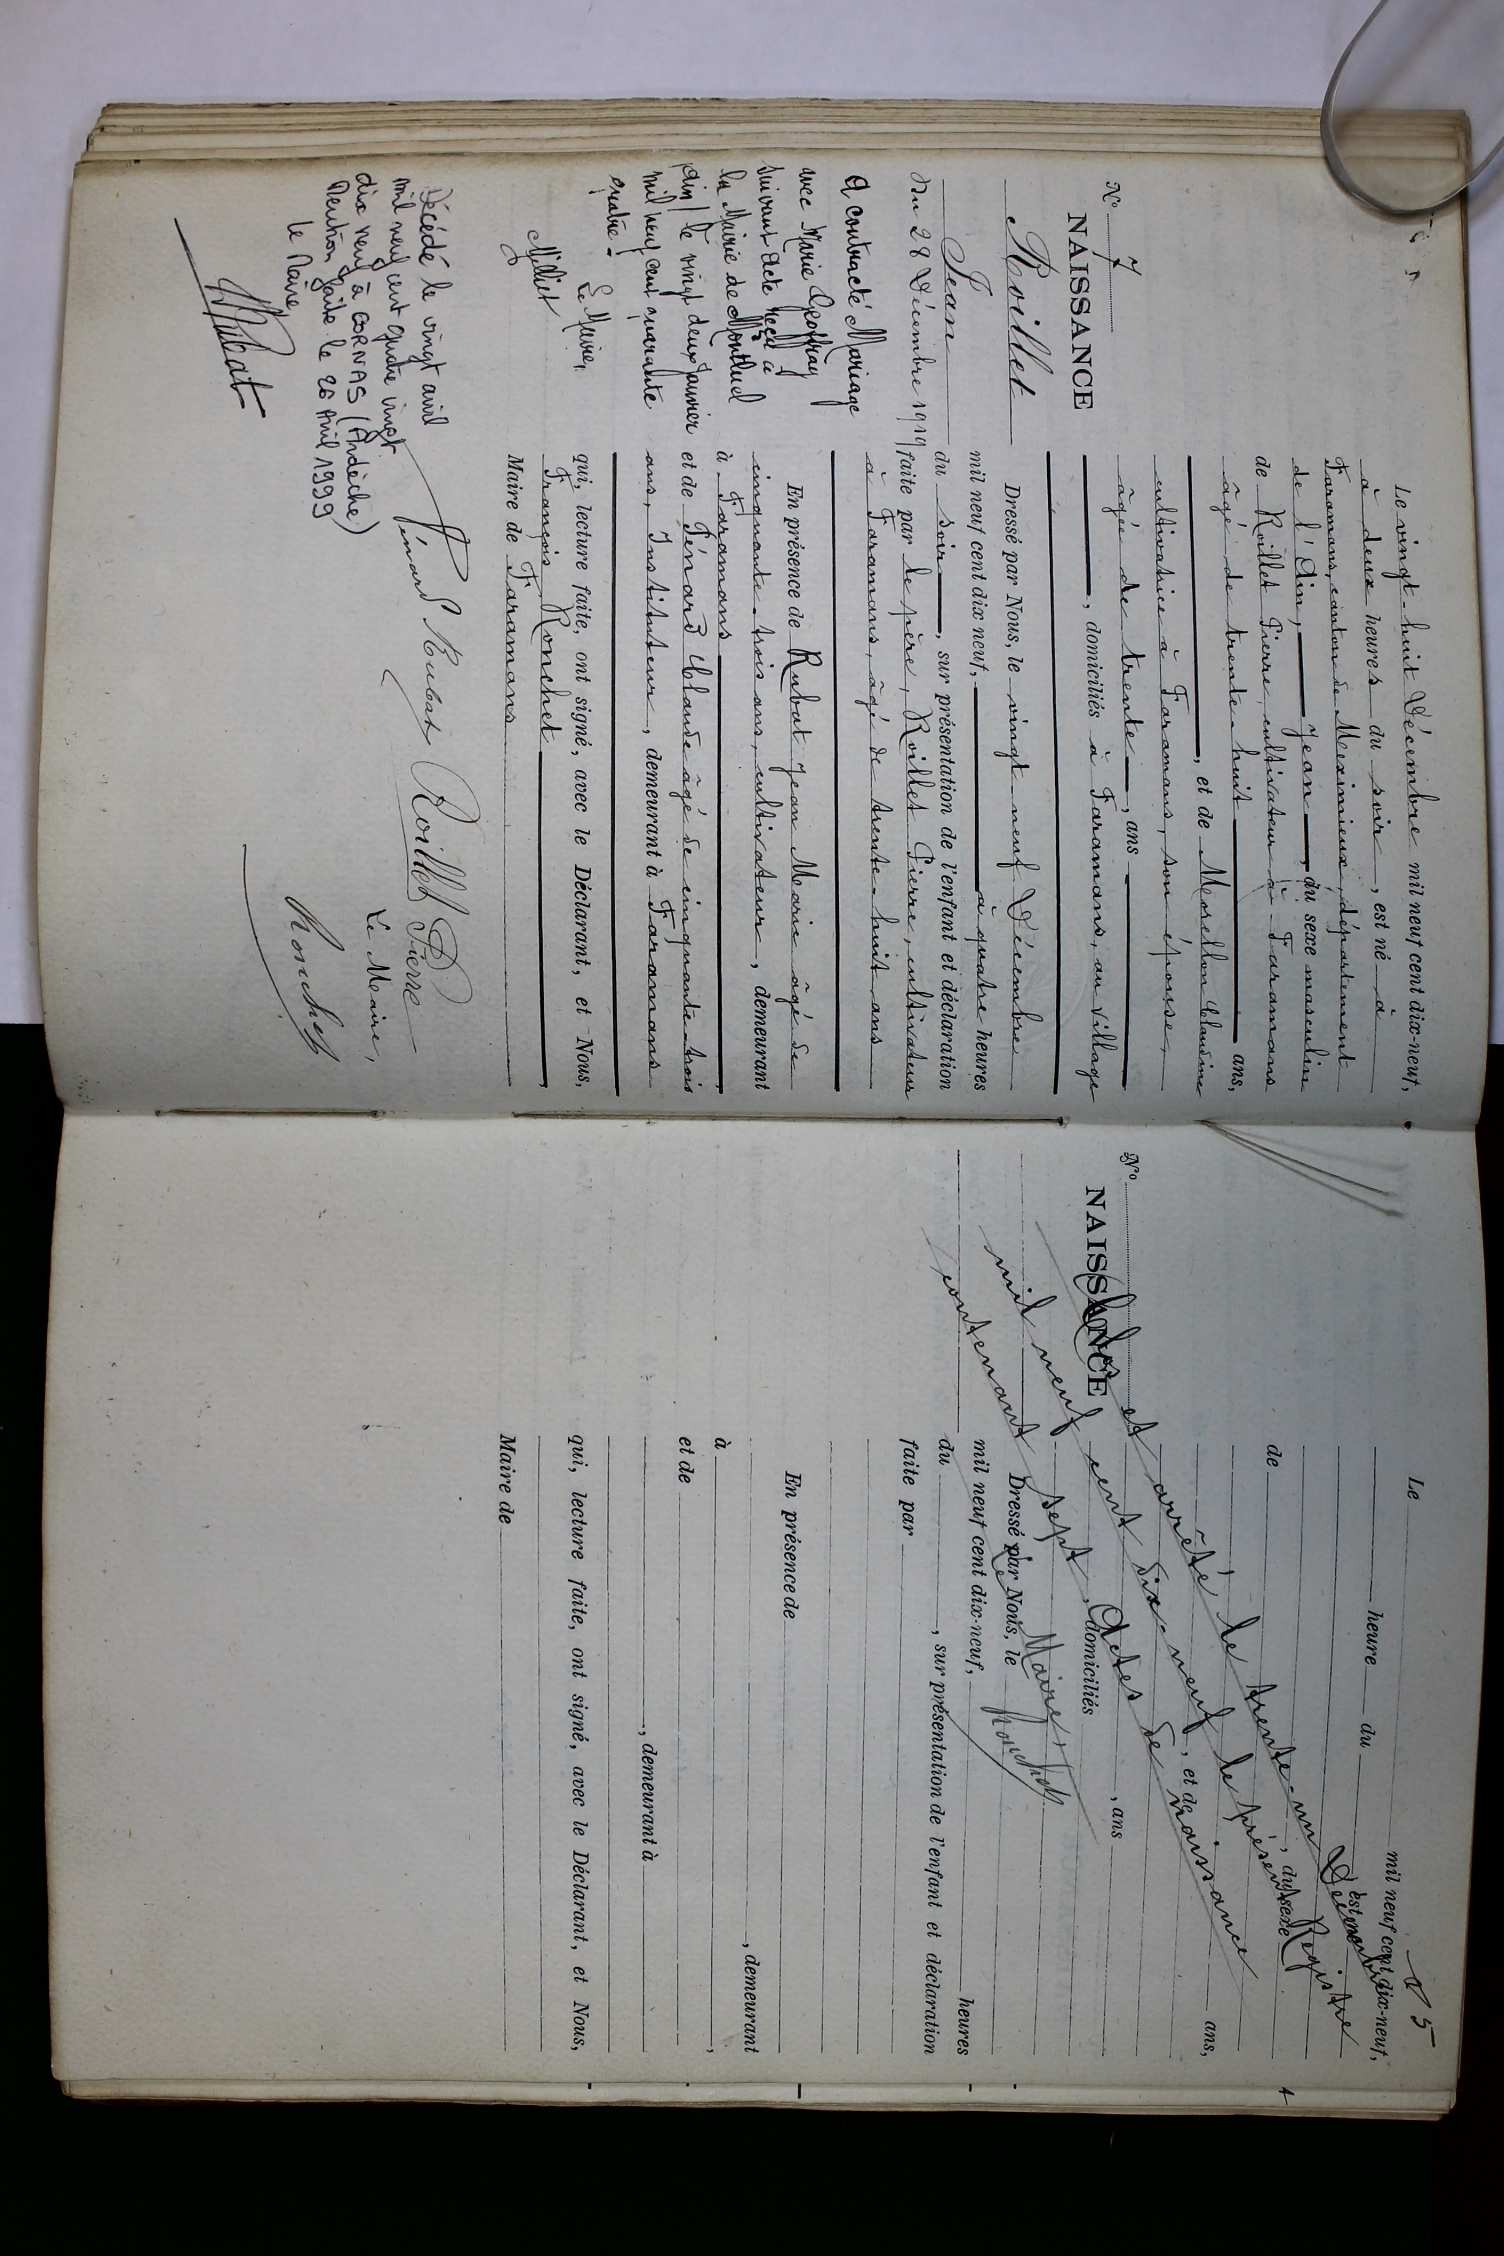 N° 7
NAISSANCE
Roillet
Jean
Du 28 Décembre 1919
A contracté Mariage
avec Marie Geoffray
suivant acte reçu à
la Mairie de Montluel
(Ain) le vingt deux janvier
mil neuf cent quarante
quatre.
Le Maire,
Milliet
Décédé le vingt avril
mil neuf cent quatre vingt
dix neuf à CORNAS (Ardèche)
Mention faite le 26 Avril 1999
le Maire,
Rubat
Le vingt-huit Décembre mil neuf cent dix-neuf,
à deux heures du soir, est né à
Faramans, canton de Meximieux, département
de l'Ain, Jean, du sexe masculin
de Roillet Pierre, cultivateur à Faramans
âgé de trente-huit ans,
, et de Morellon Claudine
cultivatrice à Faramans, son épouse,
âgée de trente, ans
, domiciliés à Faramans, au village
Dressé par Nous, le vingt-neuf Décembre
mil neuf cent dix neuf, à quatre heures
du soir, sur présentation de l'enfant et déclaration
faite par le père, Roillet Pierre, cultivateur
à Faramans, âgé de trente-huit ans
En présence de Rubat Jean Marie âgé de
cinquante-trois ans, cultivateur, demeurant
à Faramans,
et de Pénard Claude âgé de cinquante-trois
ans, Instituteur, demeurant à Faramans
qui, lecture faite, ont signé, avec le Déclarant, et Nous,
François Ronchet,
Maire de Faramans
Pénard Rubat Roillet Pierre
Le Maire,
Ronchet
5
N°
NAISSANCE
Le mil neuf cent dix-neuf,
heure du est né
, du sexe
de
ans,
, et de
, ans
, domiciliés
Dressé par Nous, le
mil neuf cent dix-neuf, heures
du , sur présentation de l'enfant et déclaration
faite par
En présence de
, demeurant
à ,
et de
, demeurant à
qui, lecture faite, ont signé, avec le Déclarant, et Nous,
Maire de
Clos et arrêté le trente-un Décembre
mil neuf cent dix-neuf le présent Registre
contenant sept Actes de naissance
Le Maire,
Ronchet